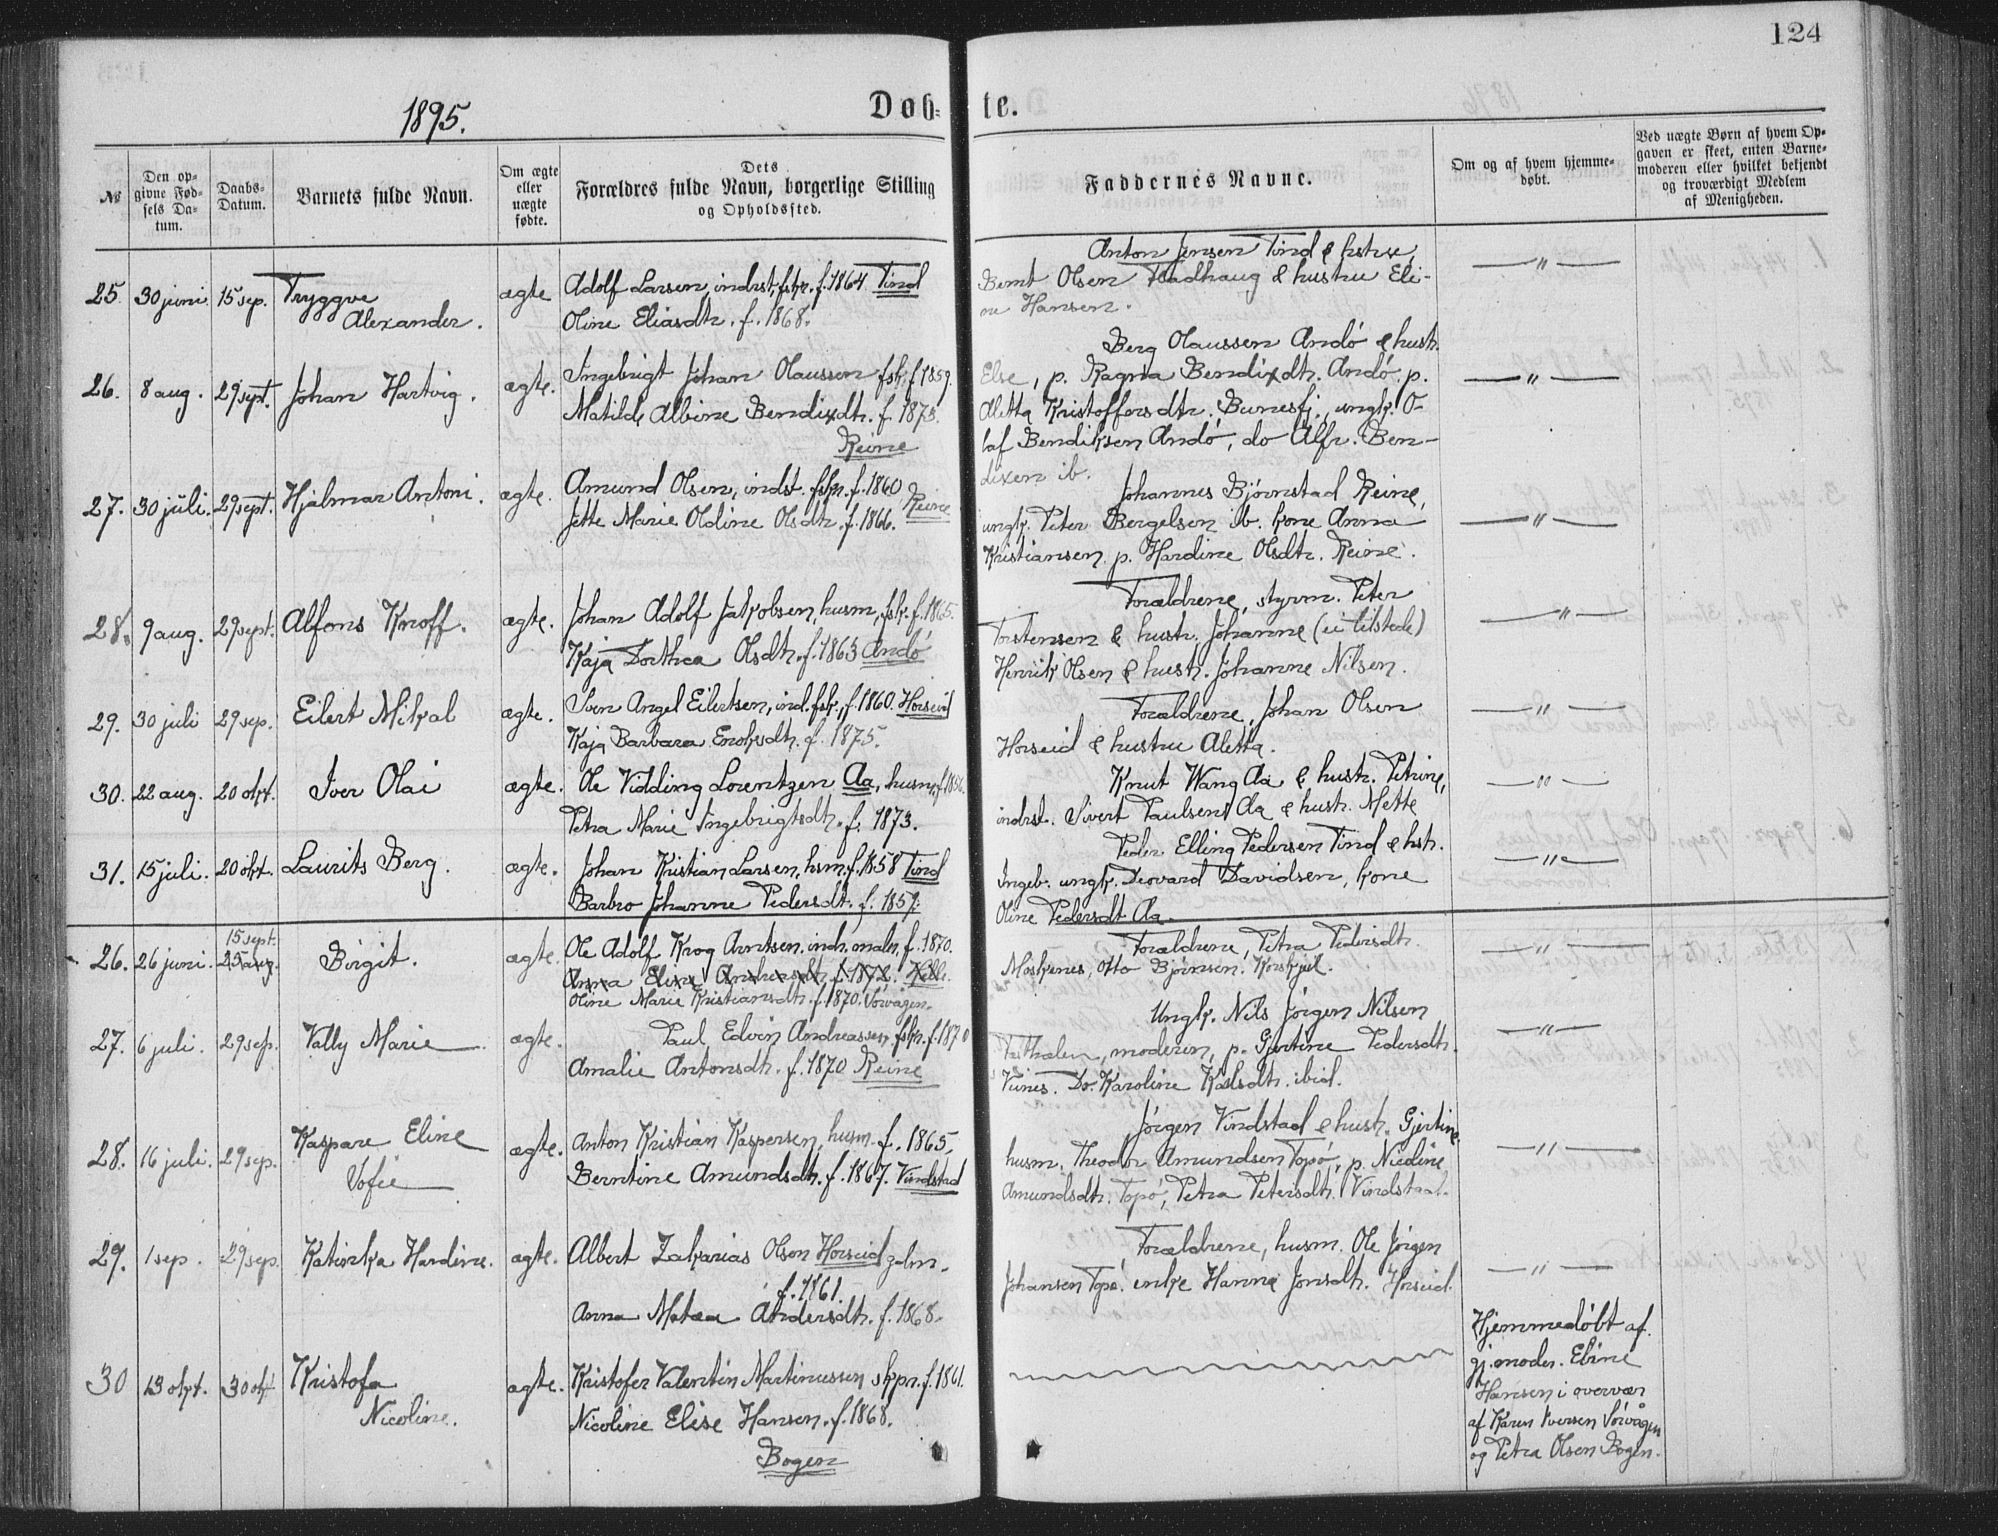 124
1895.
Døb-
te.
№
Den op-
givne Fød-
sels Da-
tum.
Daabs-
Datum.
Barnets fulde Navn.
Om ægte
eller
uægte
fødte.
Dets
Forældres fulde Navn, borgerlige Stilling
og Opholdssted.
Faddernes Navne.
Om og af hvem hjemme-
døbt.
Ved uægte Børn af hvem Op-
gaven er skeet, enten Barne-
moderen eller hvilket bekjendt
og troværdigt Medlem
af Menigheden.
25. 30 juni. 15 sep. Tryggve
Alexander.
ægte
Adolf Larsen, indrst, fskr. f. 1864 Tind
Oline Eliasdtr. f. 1868.
Anton Jensen Tind & hstru,
Bernt Olsen & hustru Eli-
ne Hansen.
— " —
26. 8 aug. 29 sept. Johan Hartvig.
ægte.
Ingebrigt Johan Olaussen fsk. f. 1859.
Matilde Albine Bendixdtr. f. 1873.
Reine
Berg Olaussen Andö & hust.
Else, p. Ragna Bendixdtr. Andö. p.
Aletta Kristoffersdtr. Bunesfj., ungk. O-
laf Bendiksen Andö, do Alfr. Ben-
dixen ib.
— " —
27. 30 juli. 29 sept. Hjalmar Antoni.
ægte.
Amund Olsen, indst. fskr. f. 1860
Jette Marie Oldine Olsdtr. f. 1866. Reine
Johannes Björnstad Reine,
ungk. Peter Bergelsen ib. kone Anna
Kristiansen, p. Hardine Olsdtr. Reine.
— " —
28. 9 aug. 29 sept. Alfons Knoff.
ægte.
Johan Adolf Jakobsen, husm, fsk. f. 1865.
Kaja Dorthea Olsdtr. f. 1863 Andö
Forældrene, styrm. Peter
Torstensen & hustr. Johanne (ei tilstede)
Henrik Olsen & hustr. Johanne Nilsen.
— " —
29. 30 juli 29 sep. Eilert Mikal
ægte.
Sven Angel Eilertsen, ind. fsk., f. 1860. Horseid
Kaja Barbara Enoksdtr. f. 1875.
Forældrene, Johan Olsen
Horseid & hustru Aletta.
— " —
30. 22 aug. 20 okt. Iver Olai
ægte.
Ole Vidding Lorentzen Aa, husm, f. 1856.
Petra Marie Ingebrigtsdtr. f. 1873.
Knut Wang Aa & hustr. Petrine,
indrst. Sivert Paulsen Aa & hustr. Mette
— " —
31. 15 juli. 20 okt. Laurits Berg.
ægte.
Johan Kristian Larsen, hsm. f. 1858 Tind
Barbro Johanne Pedersdt. f. 1857.
Peder Elling Pedersen Tind & hstr.
Ingeb. ungk. Deovard Davidsen, kone
Oline Pedersdt. Aa.
— " —
26. 26 juni. 15 sept.
25 aug.
Birgit.
ægte.
Ole Adolf Krog Arntsen. indr. maler, f. 1870.
Anna Elene Andreasdt. f. 1872.
Oline Marie Kristiansdtr. f. 1870. Sörvågen.
Forældrene, Petra Pedersdtr.
Moskenes, Otto Björnsen.
— " —
27. 6 juli. 29 sep. Vally Marie
ægte.
Paul Edvin Andreassen. fskr. f. 1870
Amalie Antonsdt. f. 1870 Reine
Ungk. Nils Jörgen Nilsen
moderen, p. Gjertine Pedersdtr.
Do. Karoline Karlsdtr. ibid.
— " —
28. 16 juli. 29 sep. Kaspare Eline
Sofie
ægte.
Anton Kristian Kaspersen, husm. f. 1865,
Berntine Amundsdt. f. 1867. Vindstad
Jörgen Vindstad & hust. Gjertine.
husm. Theodor Amundsen Topö, p. Nicoline
Amundsdtr. Topö, Petra Petersdtr. Vindstad.
— " —
29. 1 sep. 29 sep. Katinka Hardine.
ægte.
Albert Zakarias Olsen Horseid
f. 1861.
Anna Matea Andersdtr. f. 1868.
Forældrene, husm. Ole Jörgen
Johansen Topö. enke Hanna Jonsdtr. Horseid.
— " —
30 13 okt. 30 okt Kristofa
Nicoline.
ægte.
Kristofer Valentin Martinussen skpr. f. 1861.
Nicoline Elise Hansen. f. 1868.
Bogen
Hjemmedöbt af.
gj. moder. Eline
Hansen i overvær
af Karen Iversen Sörvågen
og Petra Olsen Bogen.